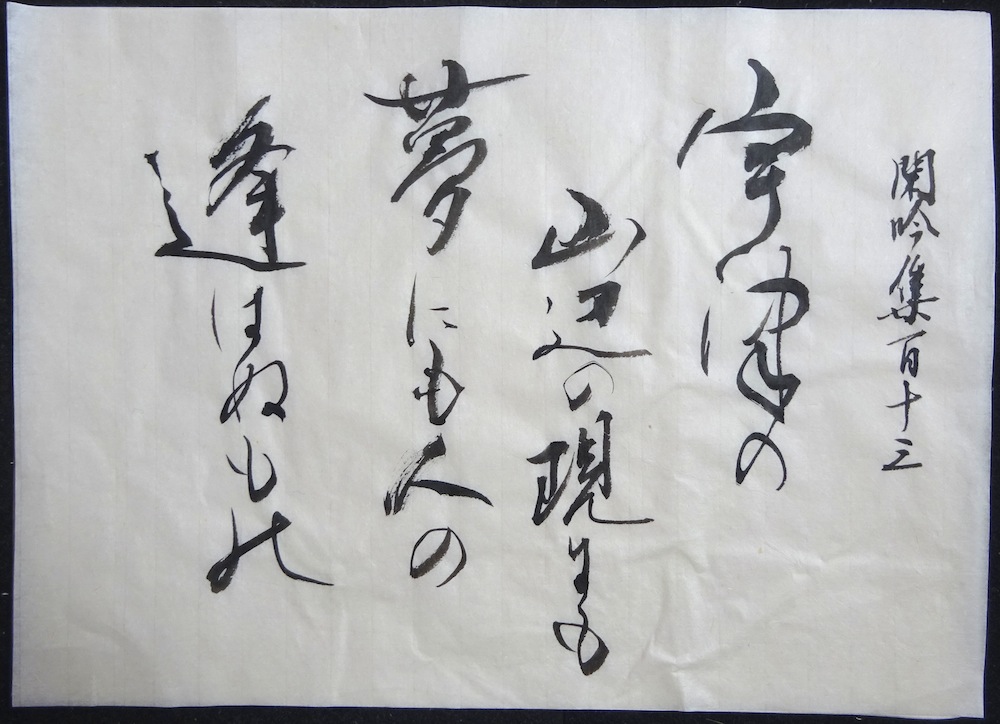 閑吟集百十三
宇津の
山辺の現にも
夢にも人の
逢はぬもの